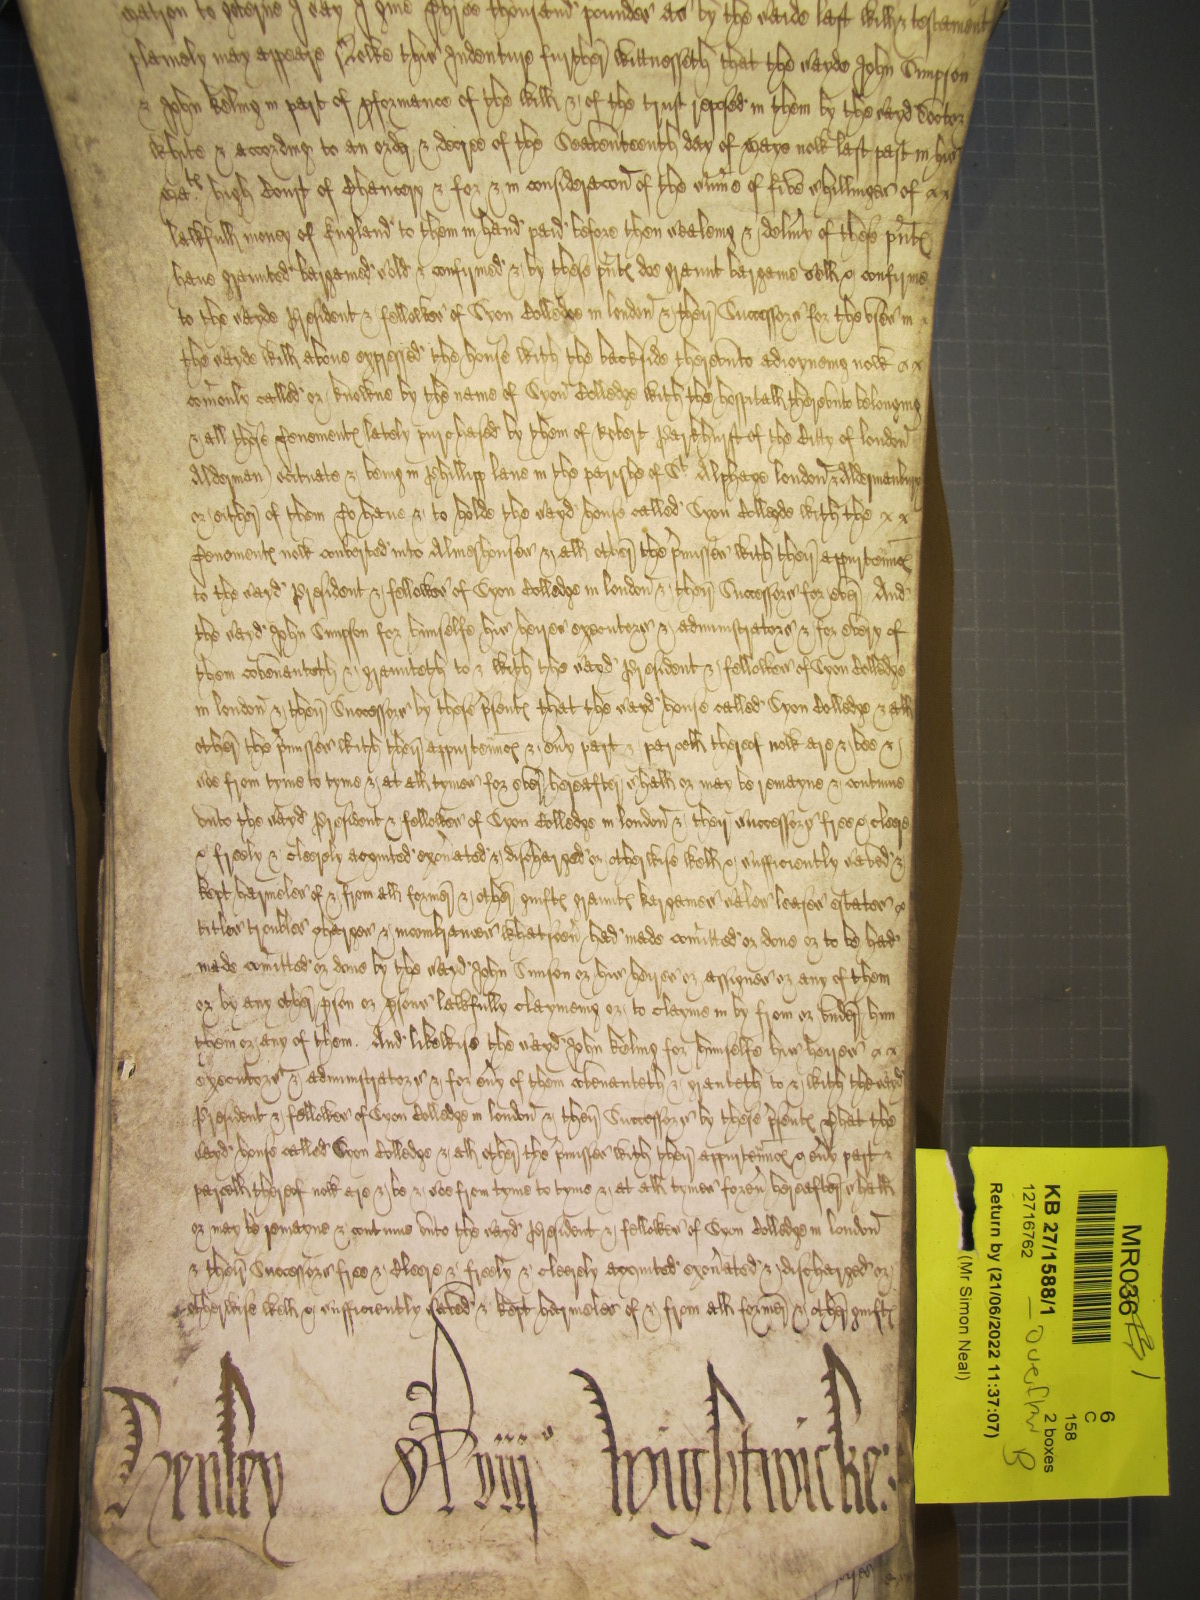 plainely may appeare Nowe this Indenture further wittnesseth that the sayde John Simpson
& John Keling in part of pformance of the will & of the trust reposed in them by the sayd Doctor
White & according to an order & decree of the Seaventeenth day of Maye now last past in his
Matie high Court of Chancery & for & in consideracon of the sume of five shillinges of x x
lawfull money of England to them in hand paid before then sealeing & delivy of these pntes
have graunted bargained sold & confirmed & by these pntes doe graunt bargaine sell & confirme
to the sayde President & fellowes of Syon Colledge in london & their Successors for the uses in x
the sayde will above expressed the house with the backside thereunto adioyneing now x x
comonly called or knowne by the name of Syon Colledge with the hospitall thereunto belonging
& all those Tenementes lately purchased by them of Robert Parkhurst of the Citty of london
Alderman scituate & being in Phillipp lane in the parishe of St Alphage london & Aldermanbury
or either of them To have & to holde the sayd house called Syon Colledge with the x x
Tenementes now converted into Almeshouses & all other the pmisses with their appurtennces
to the sayd President & fellowes of Syon Colledge in london & their Successors for ever And
the sayd John Simpson for himselfe his heires executors & administrators & for every of
them covenanteth & graunteth to & with the sayd President & fellowes of Syon Colledge
in london & their Successors by these psentes that the sayd house called Syon Colledge & all
other the pmisses with their appurtennces & evy part & parcell thereof now are & bee &
soe from tyme to tyme & at all tymes for ever hereafter shall or may be remayne & continue
unto the sayd President & fellowes of Syon Colledge in london & their successors free & cleere
& freely & cleerely acquited exonated & discharged or otherwise well & sufficiently saved &
kept harmeles of & from all former & other guiftes grauntes bargaines sales leases estates &
titles troubles charges & incombrances whatsoevr had made comitted or done or to be had
made comitted or done by the sayd John Simson or his heires or assignes or any of them
or by any other pson or psons lawfully claymeing or to clayme in by from or under him
them or any of them. And likewise the sayd John Keling for himselfe his heires x x
executors & administrators & for evy of them covenanteth & graunteth to & with the sayd
President & fellowes of Syon Colledge in london & their Successors by these psentes That the
sayd house called Syon Colledge & all other the pmisses with their appurtennces & evy part &
parcell thereof now are & be & soe from tyme to tyme & at all tymes forevr hereafter shall
or may be remayne & continue unto the sayd President & fellowes of Syon Colledge in london
& their Successors free & Cleere & freely & cleerely acquited exonated & discharged or
otherwise well & sufficiently saved & kept harmeles of & from all former & other guiftes
Henley Ro xviij Wightwicke:
MR036
6
C
158
2 boxes
KB 27/1588/1
12716762
Return by (21/06/2022 11:37:07)
(Mr Simon Neal)